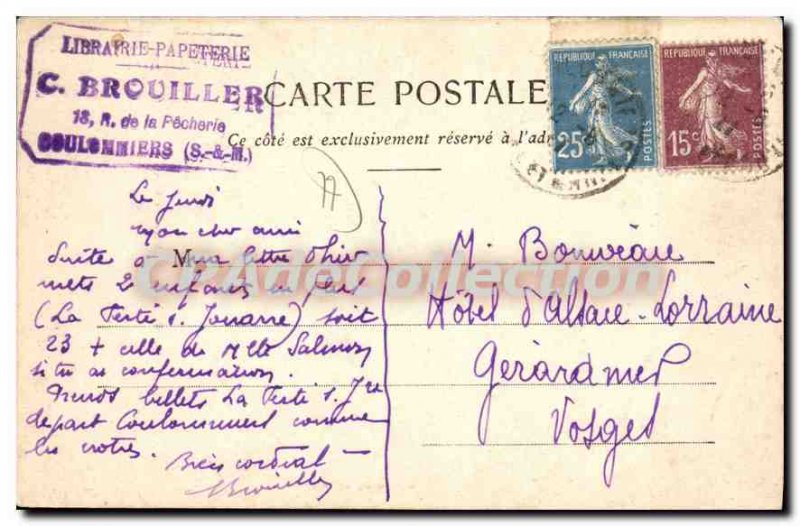 LIBRAIRIE-PAPETERIE
C. BROUILLER
18, R. de la Pêcherie
COULOMMIERS (S.-&-M.)
CARTE POSTALE
Ce côté est exclusivement réservé à l'adr
REPUBLIQUE FRANÇAISE
25c
POSTES
REPUBLIQUE FRANÇAISE
15c
POSTES
Le Jeudi
mon cher ami
Suite à ma lettre d'hier
mets 2 enfants en plus
(La Ferté s. Jouarre) soit
23 + celle de Mlle Salmon
si tu as confirmation.
Prends billets La Ferté s. Jre
départ Coulommiers comme
les notres.
Bien cordial
Brouiller
M. Bonnéane
Hôtel d'Alsace-Lorraine
Gérardmer
Vosges
CPAdeCollection